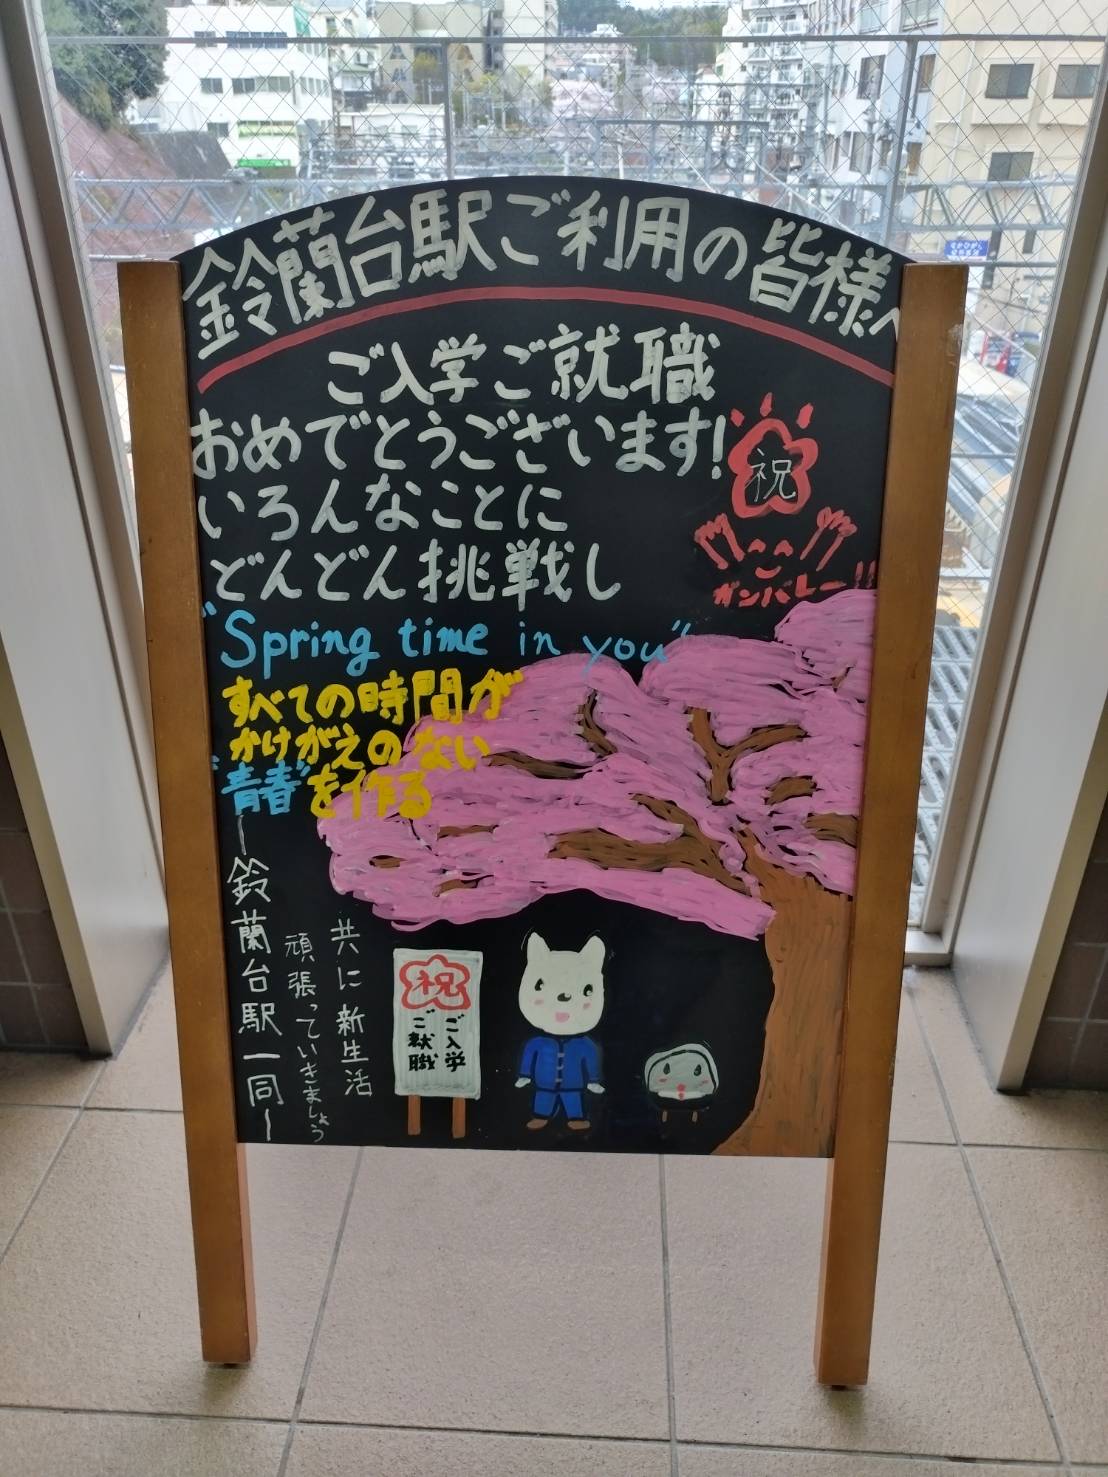 鈴蘭台駅ご利用の皆様へ
ご入学ご就職
おめでとうございます!
いろんなことに
どんどん挑戦し
"Spring time in you"
すべての時間が
かけがえのない
"青春"を作る
祝
ガンバレー!!
共に新生活
頑張っていきましょう
ー鈴蘭台駅一同ー
祝
ご入学
ご就職